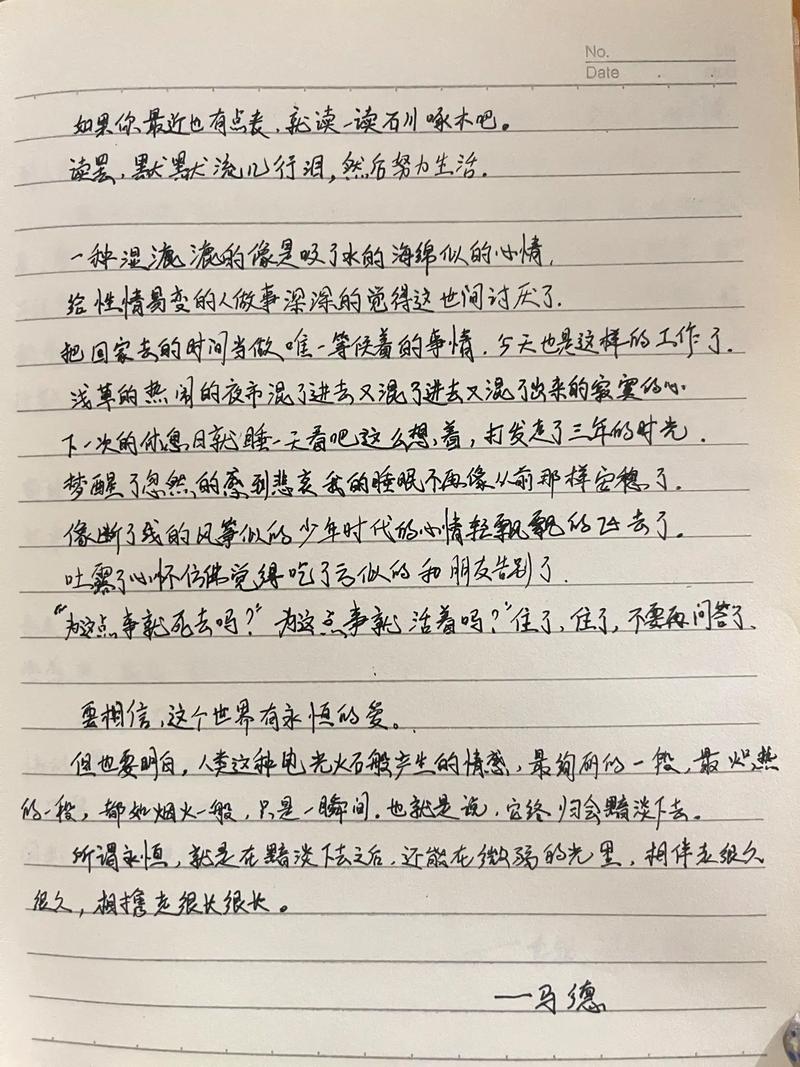 No.
Date
如果你最近也有点丧,就读一读石川啄木吧。
读罢,默默流几行泪,然后努力生活.
一种湿漉漉的像是吸了水的海绵似的心情,
给性情易变的人做事深深的觉得这世间讨厌了.
把回家去的时间当做唯一等候着的事情.今天也是这样的工作了.
浅草的热闹的夜市混了进去又混了进去又混了出来的寂寞的心
下一次的休息日就睡一天看吧这么想,着,打发走了三年的时光.
梦醒了忽然的感到悲哀我的睡眠不再像从前那样安稳了.
像断了线的风筝似的少年时代的心情轻飘飘的飞去了.
吐露了心怀仿佛觉得吃了亏似的和朋友告别了.
“为这点事就死去吗?”为这点事就活着吗?”住了,住了,不要再问答了.
要相信,这个世界有永恒的爱。
但也要明白,人类这种电光火石般产生的情感,最绚丽的一段,最炽热
的一段,都如烟火一般,只是一瞬间.也就是说,它终归会黯淡下去.
所谓永恒,就是在黯淡下去之后,还能在微弱的光里,相伴走很久
很久,相携走很长很长。
——马德